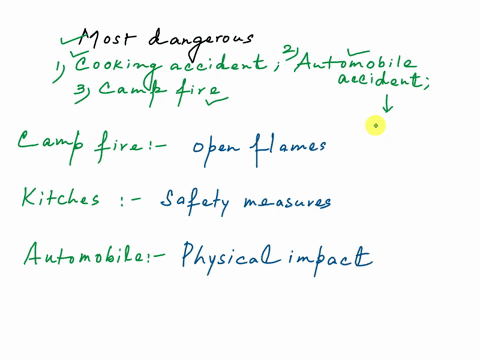 Most dangerous
1) Cooking accident ; 2) Automobile
accident;
3) Camp fire
Camp fire :- open flames
Kitches :- Safety measures
Automobile :- Physical impact